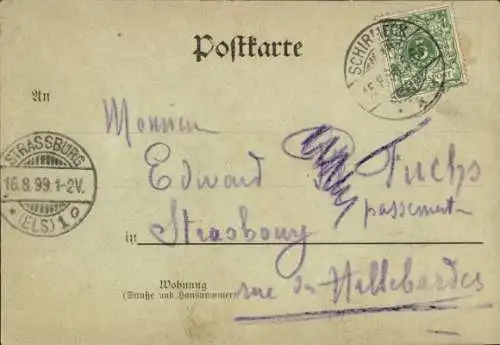 Postkarte
SCHIRMECK
5
An
Monsieur
STRASSBURG
16.8.99.1-2V.
* (ELS) 1 o
Edward Fuchs
passement
in Strasbourg
Wohnung
(Straße und Hausnummer)
rue des Hallebardes